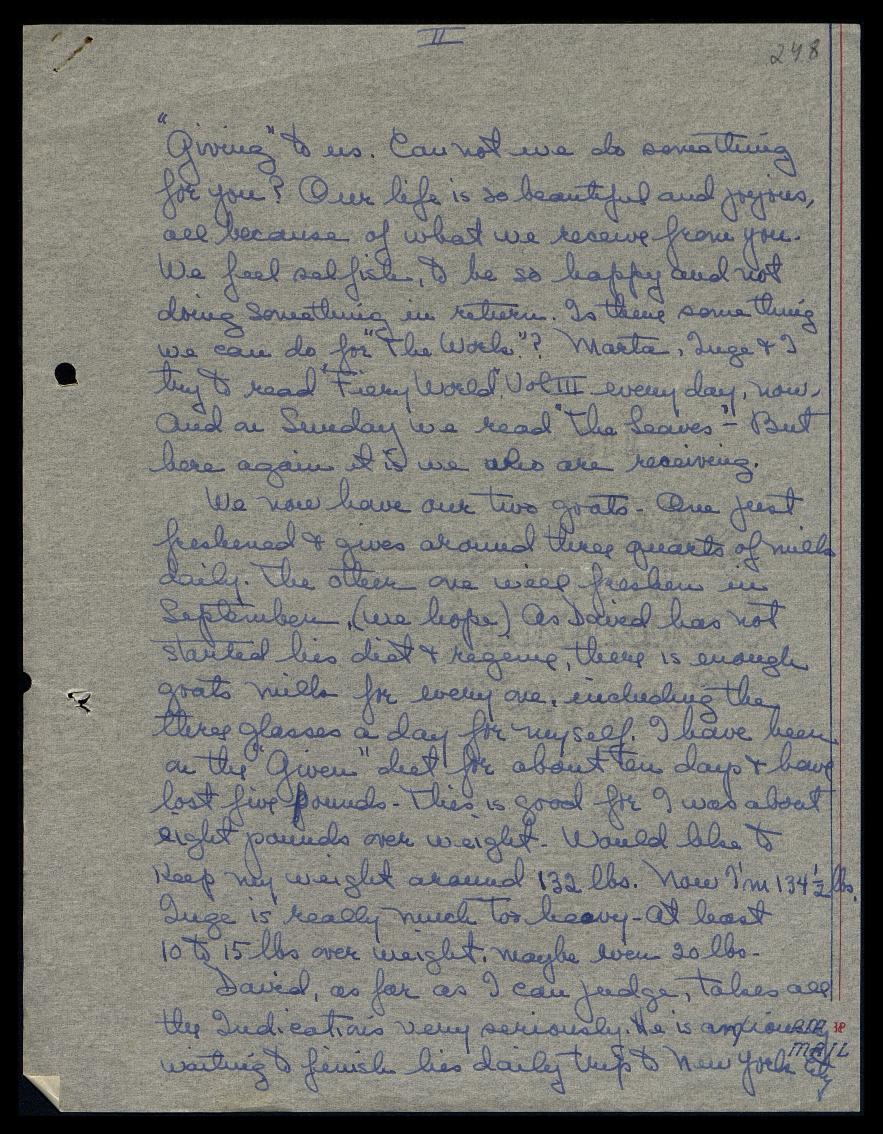 II
248
"Giving" to us. Can not we do something
for you? Our life is so beautiful and joyous,
all because of what we receive from you.
We feel selfish, to be so happy and not
doing something in return. Is there something
we can do for "The Work"? Marta, Inge & I
try to read "Fiery World" Vol III every day, now.
And on Sunday we read "The Leaves" - But
here again it is we who are receiving.
We now have our two goats - One just
freshened & gives around three quarts of milk
daily. The other one will freshen in
September, (we hope) As David has not
started his diet & regime, there is enough
goats milk for every one, including the
three glasses a day for myself. I have been
on the "Given" diet for about ten days & have
lost five pounds - This is good for I was about
eight pounds over weight. Would like to
keep my weight around 132 lbs. Now I'm 134½ lbs.
Inge is really much too heavy - at least
10 to 15 lbs over weight, maybe even 20 lbs -
David, as far as I can judge, takes all
the Indications very seriously. He is anxiously
waiting to finish his daily trips to New York City
AIR
MAIL